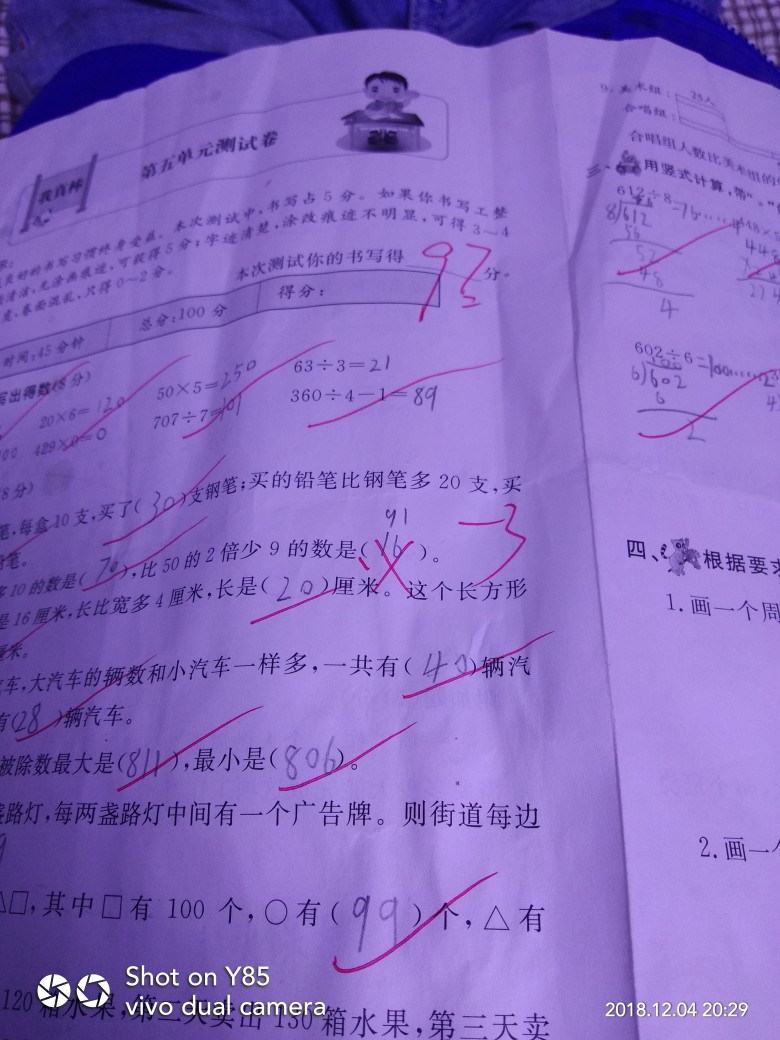 第五单元测试卷
我真棒
良好的书写习惯终身受益。本次测试中,书写占5分。如果你书写工整
清洁,无涂画痕迹,可获得5分;字迹清楚,涂改痕迹不明显,可得3~4
卷面混乱,只得0~2分。
本次测试你的书写得 分。
97
时间:45分钟 总分:100分 得分:
写出得数(8分)
20×6=120 50×5=250 63÷3=21
429×0=0 707÷7=101 360÷4-1=89
8分)
笔,每盒10支,买了(30)支钢笔;买的铅笔比钢笔多20支,买
多10的数是(70),比50的2倍少9的数是(16)。
91
-3
是16厘米,长比宽多4厘米,长是(20)厘米。这个长方形
厘米。
汽车,大汽车的辆数和小汽车一样多,一共有(40)辆汽
有(28)辆汽车。
被除数最大是(811),最小是(806)。
盏路灯,每两盏路灯中间有一个广告牌。则街道每边
9
△□,其中□有100个,○有(99)个,△有
120箱水果,第二天卖出130箱水果,第三天卖
9.美术组: 25人
合唱组:
合唱组人数比美术组的
三、用竖式计算,带"
612÷8=76……4
76
8)612
56
52
48
4
448
602÷6=100……2
100
6)602
6
2
四、根据要求
1.画一个周
2.画一个
Shot on Y85
vivo dual camera
2018.12.04 20:29